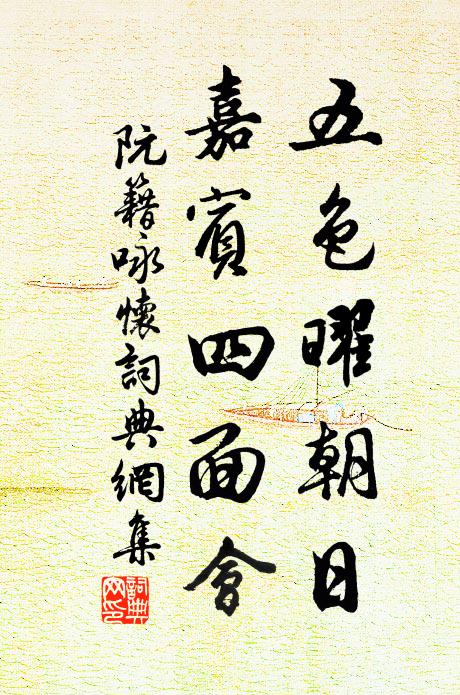 五色曜朝日
嘉賓四面會
阮籍咏懷詞典網集
詞典網印